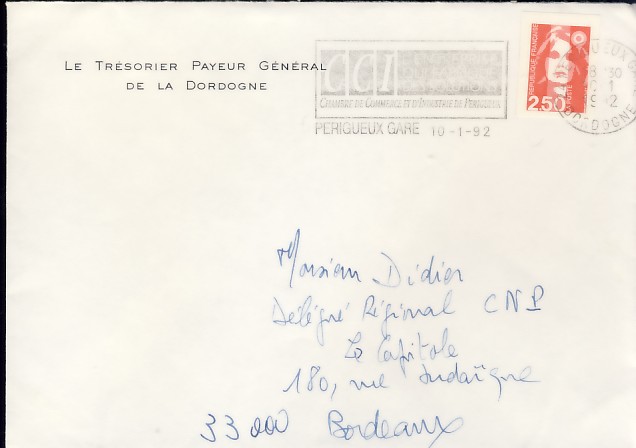 LE TRÉSORIER PAYEUR GÉNÉRAL
DE LA DORDOGNE
CCI
CHAMBRE DE COMMERCE ET D'INDUSTRIE DE PERIGUEUX
PERIGUEUX GARE 10-1-92
REPUBLIQUE FRANÇAISE
2,50
LA POSTE
DORDOGNE
Monsieur Didier
Délégué Régional CNP
Le Capitole
180, rue Judaïque
33000 Bordeaux